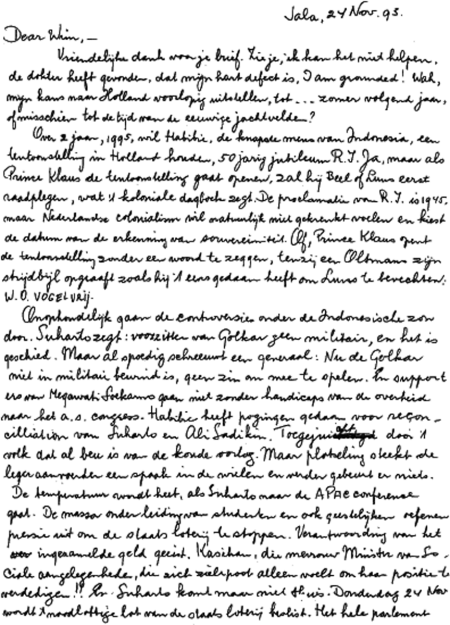 Jala, 24 Nov. 93.
Dear Wim, –
Vriendelijke dank voor je brief. Zie je, ik kan het niet helpen,
de dokter heeft gevonden, dat mijn hart defect is, I am grounded! Wah,
mijn kans naar Holland voorlopig uitstellen, tot ... zomer volgend jaar,
of misschien tot de tijd van de eeuwige jachtvelden?
Over 2 jaar, 1995, wil Habibie, de knapste mens van Indonesia, een
tentoonstelling in Holland houden, 50 jarig jubileum R.I. Ja, maar als
Prince Klaus de tentoonstelling gaat openen, zal hij Beel of Luns eerst
raadplegen, wat 't koloniale dagboek zegt. De proclamatie van R.I. is 1945.
maar Nederlandse colonialism wil natuurlijk niet gekrenkt voelen en kiest
de datum van de erkenning van souvereiniteit. Of, Prince Klaus opent
de tentoonstelling zonder een woord te zeggen, tenzij een Oltmans zijn
strijdbijl opgraaft zoals hij 't eens gedaan heeft om Luns te bevechten:
W.O. VOGELVRIJ.
Onophoudelijk gaan de controversies onder de Indonesische zon
door. Suharto zegt: voorzitter van Golkar geen militair, en het is
geschied. Maar al spoedig schreeuwt een generaal: Nu de Golkar
niet in militair bewind is, geen zin om mee te spelen. En support
ers van Megawati Soekarno gaan niet zonder handicaps van de overheid
naar het a.s. congress. Habibie heeft pogingen gedaan voor recon-
cilliation van Suharto en Ali Sadikin. Toegejuicht door 't
volk dat al beu is van de koude oorlog. Maar plotseling steekt de
leger aanvoerder een spaak in de wielen en verder gebeurt er niets.
De temperatuur wordt heet, als Suharto naar de APAC conference
gaat. De massa onder leiding van studenten en ook geestelijken oefenen
pressie uit om de staats loterij te stoppen. Verantwoording van het
over ingezamelde geld geeist. Kasihan, die mevrouw Minister van So-
ciale aangelegenheden, die zich zielspoot alleen voelt om haar positie te
verdedigen!! En Suharto komt maar niet thuis. Donderdag 24 Nov
wordt 't noodlottige lot van de staats loterij beslist. Het hele parlement